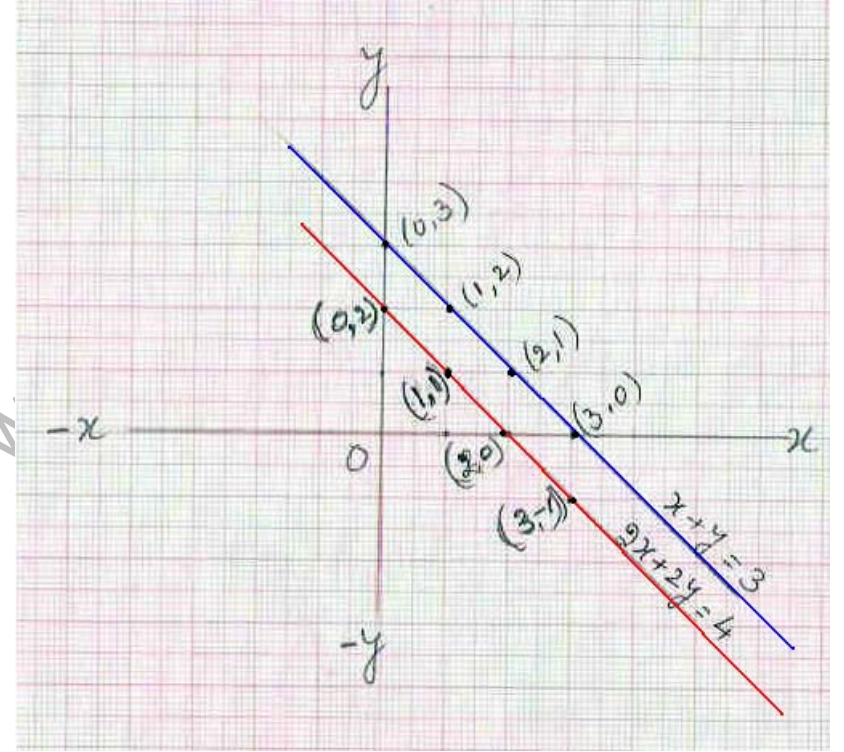 y
(0,3)
(1,2)
(0,2)
(2,1)
(1,1)
(3,0)
-x
x
0
(2,0)
(3,-1)
x+y=3
2x+2y=4
-y